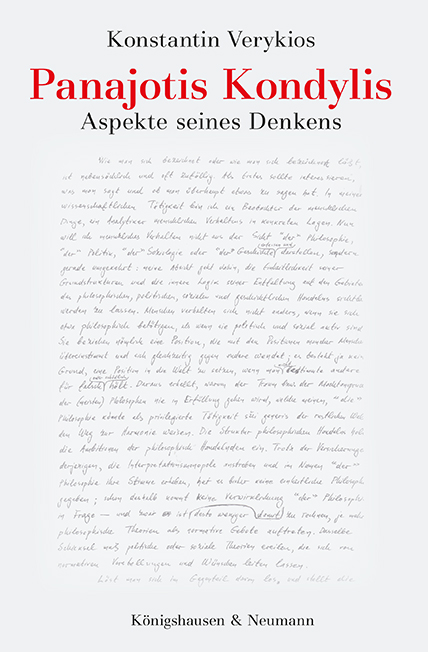 Konstantin Verykios
Panajotis Kondylis
Aspekte seines Denkens
Wie man sich bezeichnet oder wie man sich bezeichnen läßt,
ist nebensächlich und oft zufällig. Als Erstes sollte interessieren,
was man sagt und ob man überhaupt etwas zu sagen hat. In meiner
wissenschaftlichen Tätigkeit bin ich ein Beobachter der menschlichen
Dinge, ein Analytiker menschlichen Verhaltens in konkreten Lagen. Nun
will ich menschliches Verhalten nicht aus der Sicht "der" Philosophie,
"der" Politik, "der" Soziologie oder "der" Geschichte darstellen, sondern
gerade umgekehrt: meine Absicht geht dahin, die Einheitlichkeit seiner
Grundstrukturen und die innere Logik seiner Entfaltung auf den Gebieten
des philosophischen, politischen, sozialen und geschichtlichen Handelns
werden zu lassen. Menschen verhalten sich nicht anders, wenn sie sich
etwa philosophisch betätigen, als wenn sie politisch und sozial aktiv sind
Sie beziehen nämlich eine Position, die mit den Positionen mancher Menschen
übereinstimmt und sich gleichzeitig gegen andere wendet; es besteht ja kein
Grund, eine Position in die Welt zu setzen, wenn man bestimmte andere
für falsch hält. Daraus erhellt, warum der Traum
der (meisten) Philosophen nie in Erfüllung gehen wird, welche meinen, "die"
Philosophie könnte als privilegierte Tätigkeit sui generis der restlichen Welt
den Weg zur Harmonie weisen. Die Struktur philosophischen Handelns
die Ambitionen der philosophisch Handelnden ein. Trotz der Versicherungen
derjenigen, die Interpretationsmonopole anstreben und im Namen "der"
Philosophie ihre Stimme erheben, hat es bisher keine einheitliche Philosophie
gegeben; schon deshalb kommt keine Verwirklichung "der" Philosophie
in Frage — und zwar ist desto weniger damit zu rechnen, je mehr
philosophische Theorien als normative Gebote auftreten. Dasselbe
Schicksal muß politische oder soziale Theorien ereilen, die sich von
normativen Vorstellungen und Wünschen leiten lassen.
Löst man sich im Gegenteil davon los, und stellt die
Königshausen & Neumann